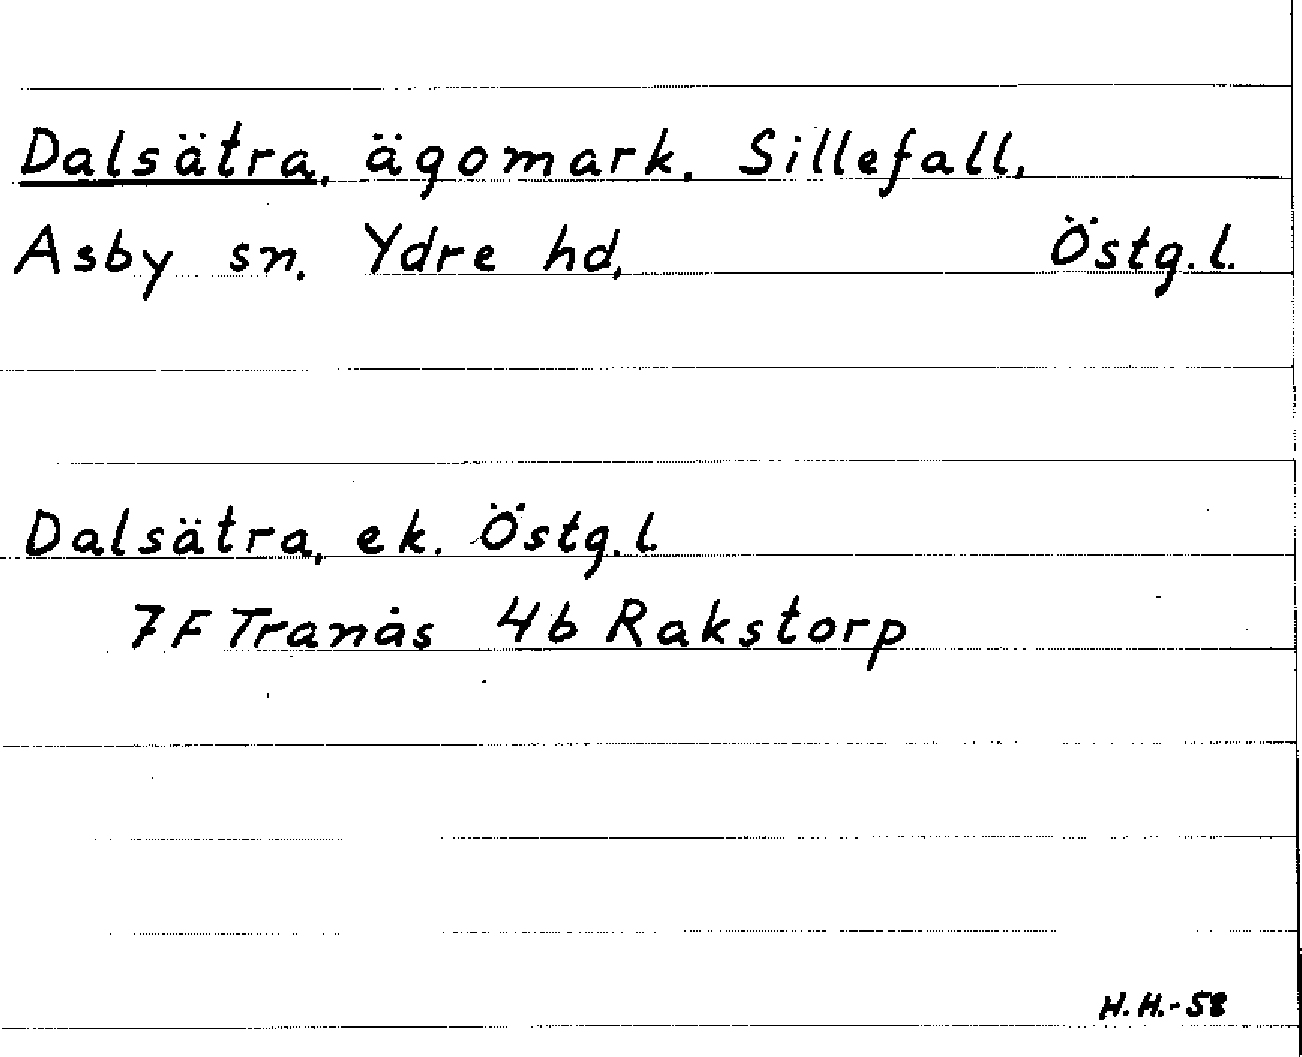 Dalsätra, ägomark. Sillefall,
Asby sn. Ydre hd, Östg.l.
Dalsätra, ek. Östg.l.
7F Tranås 4b Rakstorp
H.H.-58